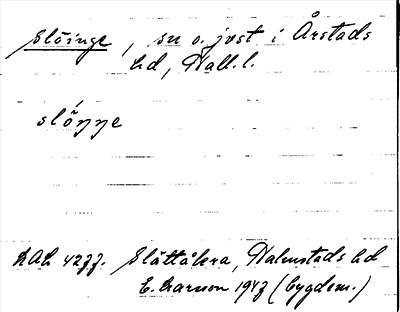 Slöinge, sn o. jvst i Årstads
hd, Hall.l.
slöŋŋe
Slättåkra, Halmstads hd
E. Larsson 1947 (bygdem.)